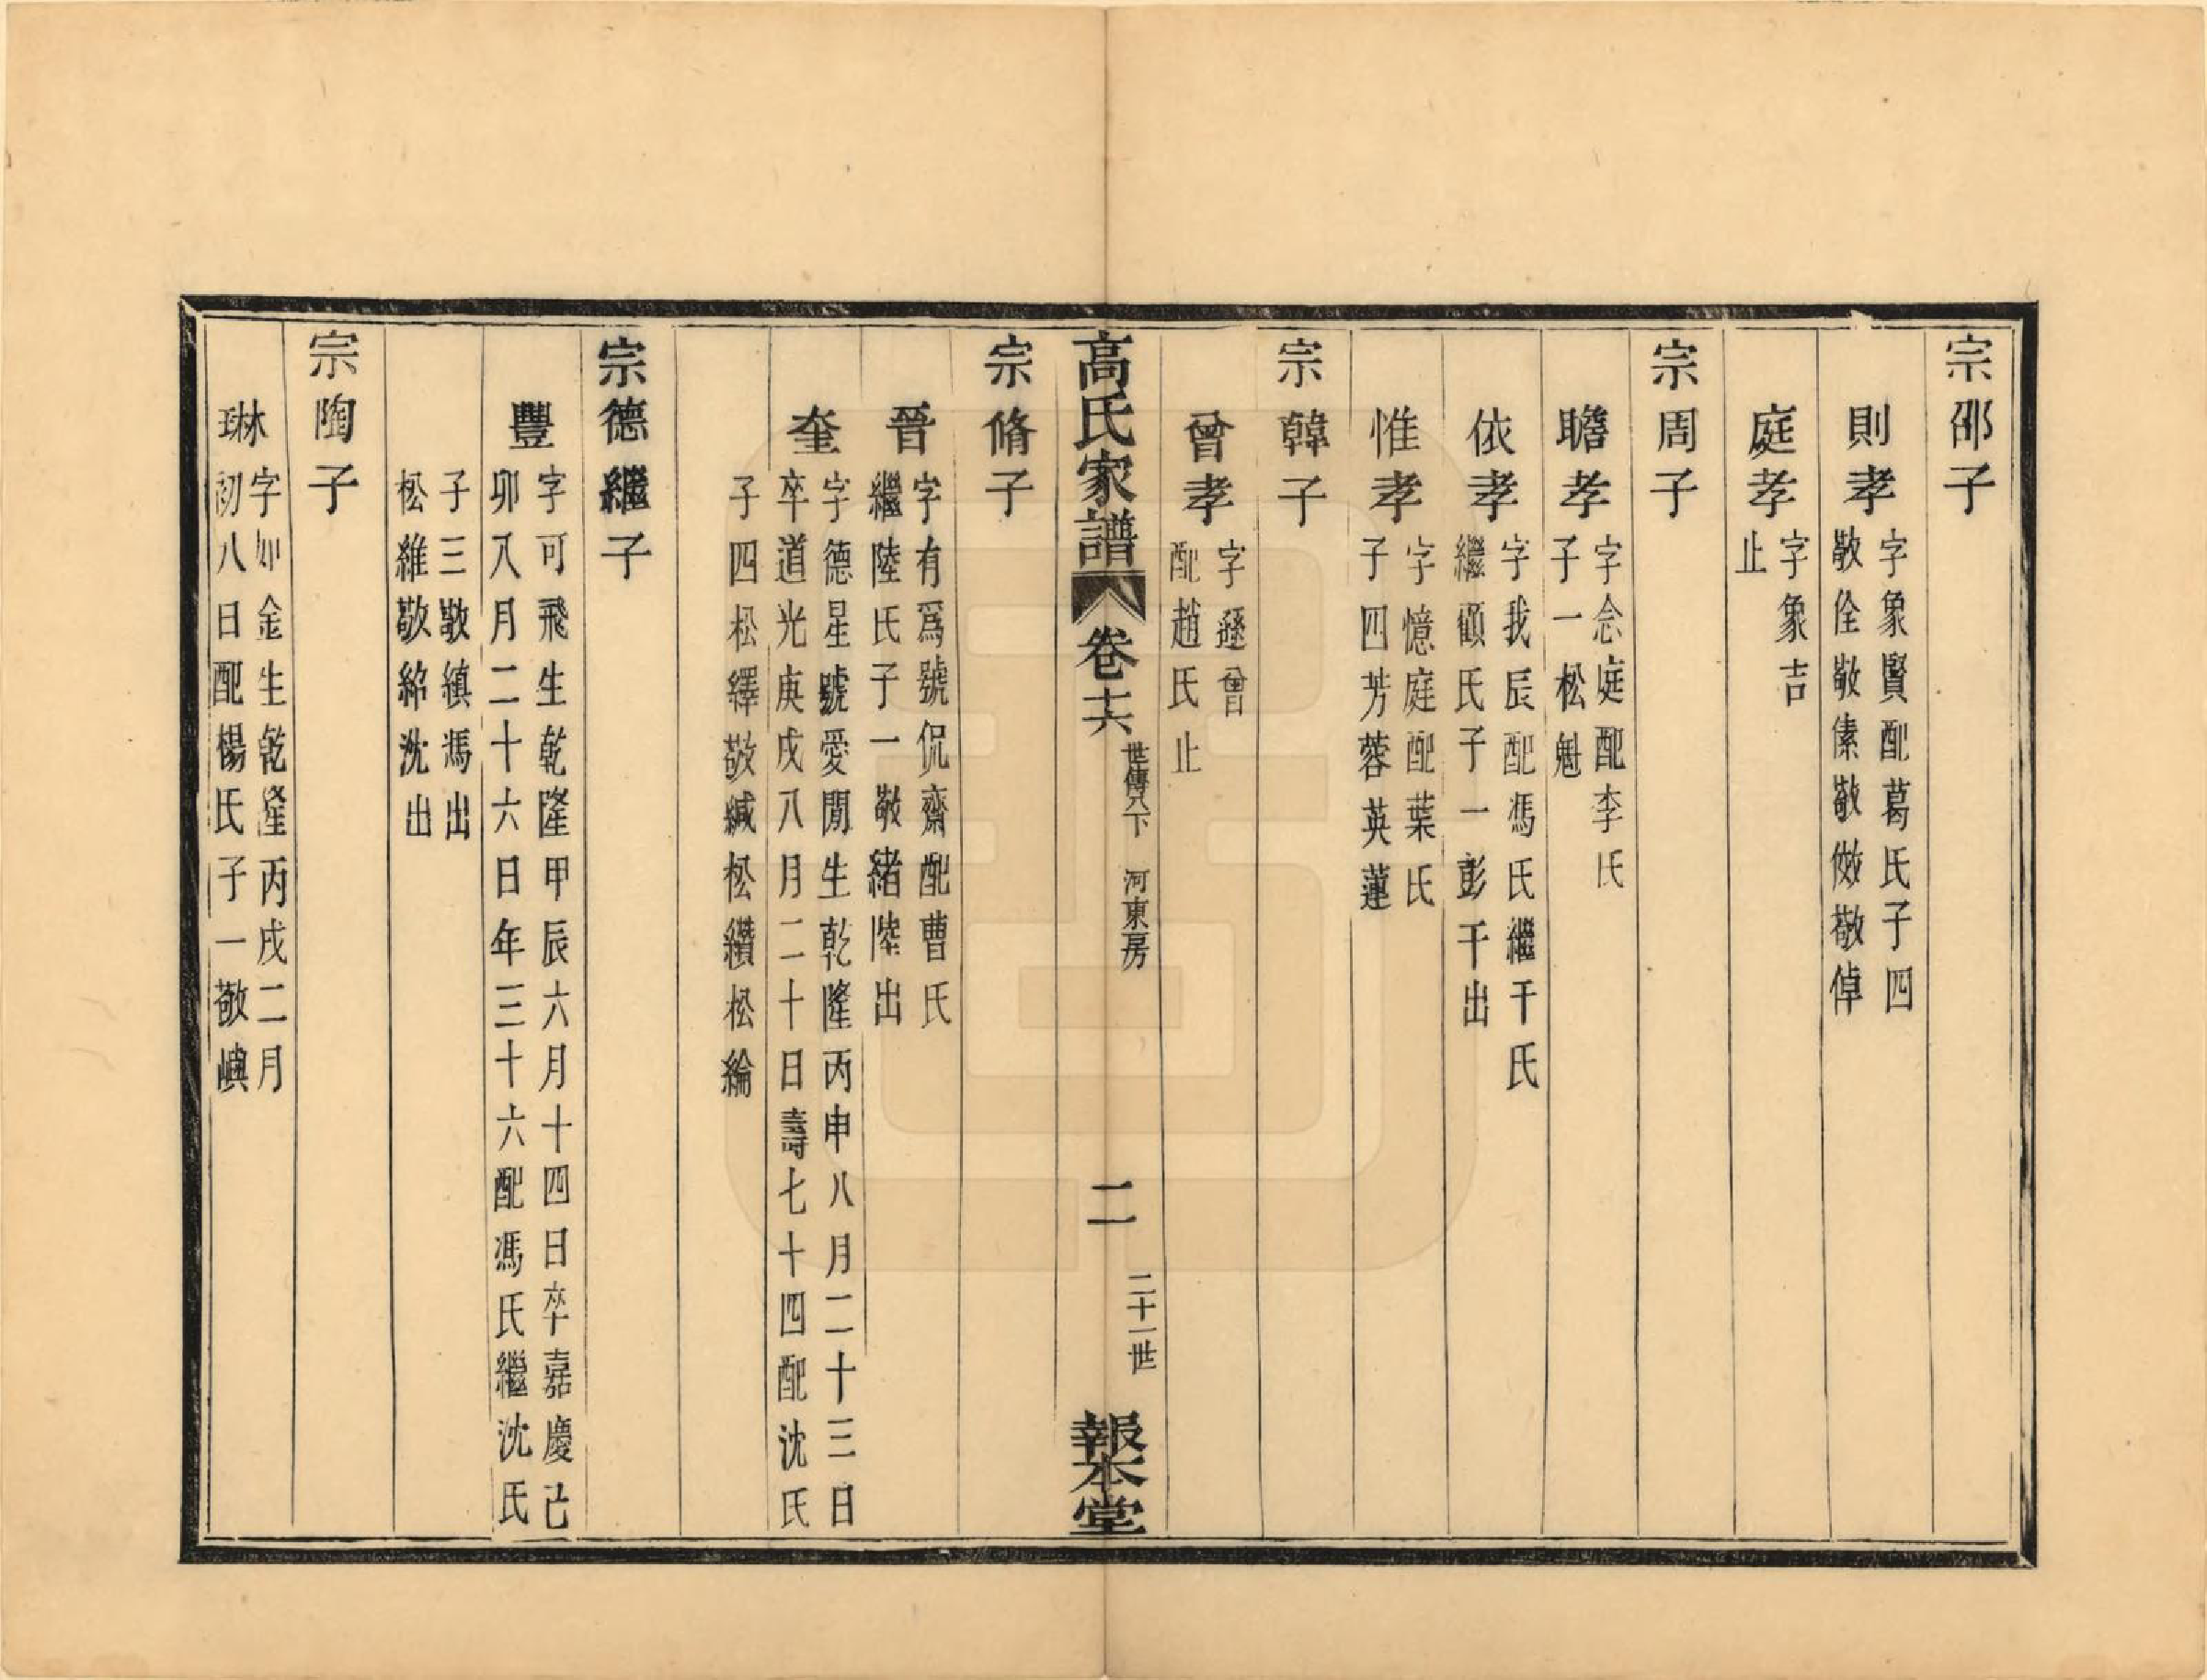 宗邵子
則孝
字象賢配葛氏子四
敬佺敬傃敬傚敬倬
庭孝
字象吉
止
宗周子
瞻孝
字念庭配李氏
子一松魁
依孝
字我辰配馮氏繼干氏
繼顧氏子一彭干出
惟孝
字憶庭配葉氏
子四芳蓉英蓮
宗韓子
曾孝
字遜曾
配趙氏止
高氏家譜
卷十六
世傳八下 河東房
二
二十一世
報本堂
宗脩子
晉
字有爲號侃齋配曹氏
繼陸氏子一敬緒陸出
奎
字德星號愛閒生乾隆丙申八月二十三日
卒道光庚戌八月二十日壽七十四配沈氏
子四松繹敬緘松纘松綸
宗德繼子
豐
字可飛生乾隆甲辰六月十四日卒嘉慶己
卯八月二十六日年三十六配馮氏繼沈氏
子三敬縝馮出
松維敬綿沈出
宗陶子
琳
字如金生乾隆丙戌二月
初八日配楊氏子一敬嶼